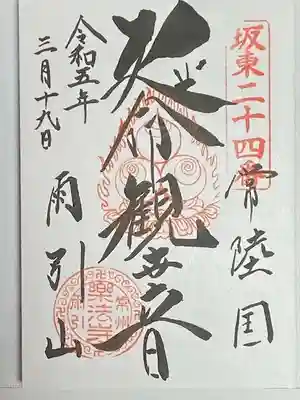 坂東二十四番
常陸国
延命観世音
令和五年
三月十九日
雨引山
常州
樂法寺
雨引